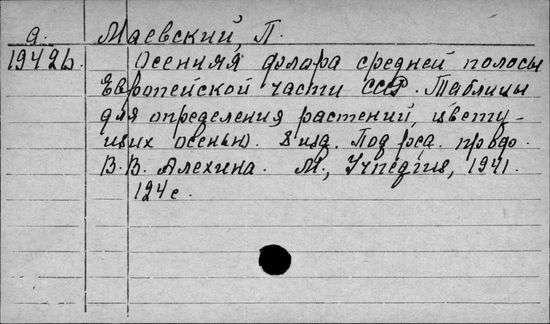 а. Маевский, П.
1942б. Осенняя флора средней полосы
Европейской части СССР. Таблицы
для определения растений, цвету-
щих осенью. 8 изд. Под ред. проф.
В.В. Алехина. М., Учпедгиз, 1941.
124 с.